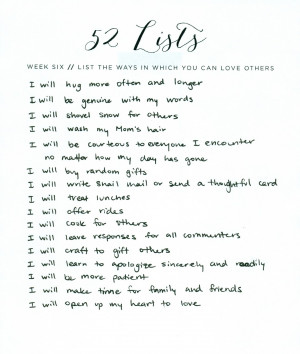 52 Lists
WEEK SIX // LIST THE WAYS IN WHICH YOU CAN LOVE OTHERS
I will hug more often and longer
I will be genuine with my words
I will shovel snow for others
I will wash my Mom's hair
I will be courteous to everyone I encounter
no matter how my day has gone
I will buy random gifts
I will write snail mail or send a thoughtful card
I will treat lunches
I will offer rides
I will cook for others
I will leave responses for all commenters
I will craft to gift others
I will learn to apologize sincerely and readily
I will be more patient
I will make time for family and friends
I will open up my heart to love